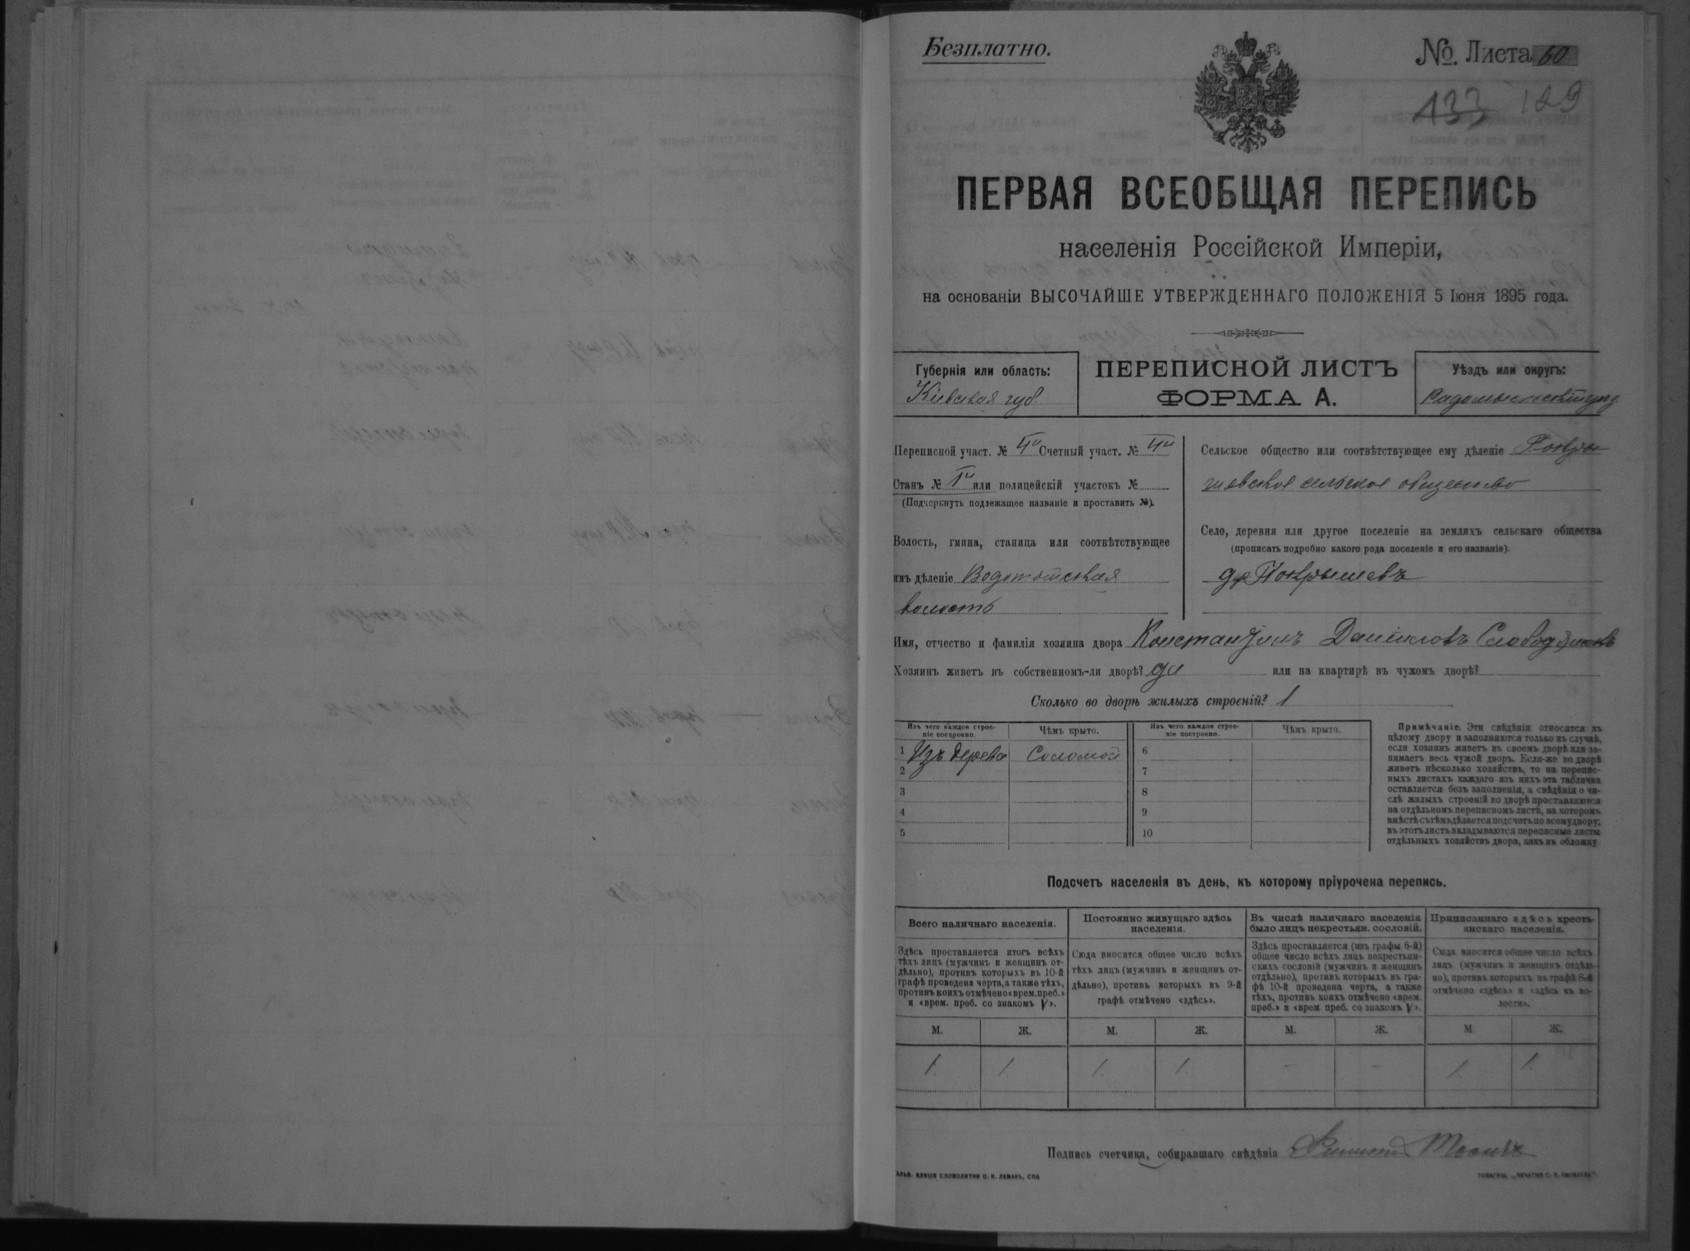 Безплатно.
№. Листа 60
133 129
ПЕРВАЯ ВСЕОБЩАЯ ПЕРЕПИСЬ
населенія Россійской Имперіи,
на основаніи ВЫСОЧАЙШЕ УТВЕРЖДЕННАГО ПОЛОЖЕНІЯ 5 Іюня 1895 года.
Губернія или область:
Кіевская губ
ПЕРЕПИСНОЙ ЛИСТЪ
ФОРМА А.
Уѣздъ или округъ:
Переписной участ. № 4й Счетный участ. № 4й
Станъ № 1й или полицейскій участокъ №
(Подчеркнуть подлежащее названіе и проставить №).
Волость, гмина, станица или соотвѣтствующее
имъ дѣленіе Водотыйская
волость
Сельское общество или соотвѣтствующее ему дѣленіе Покры
шевское сельское общество
Село, деревня или другое поселеніе на земляхъ сельскаго общества
(прописать подробно какого рода поселеніе и его названіе).
др Покрышевъ
Имя, отчество и фамилія хозяина двора Константинъ Даниловъ
Хозяинъ живетъ въ собственномъ-ли дворѣ? да или на квартирѣ въ чужомъ дворѣ?
Сколько во дворѣ жилыхъ строеній? 1
Изъ чего каждое строеніе построено. Чѣмъ крыто. Изъ чего каждое строеніе построено. Чѣмъ крыто.
1 Изъ дерева Соломой 6
2 7
3 8
4 9
5 10
Примѣчаніе. Эти свѣдѣнія относятся къ
цѣлому двору и заполняются только въ случаѣ,
если хозяинъ живетъ въ своемъ дворѣ или за-
нимаетъ весь чужой дворъ. Если-же во дворѣ
живетъ нѣсколько хозяйствъ, то на перепис-
ныхъ листахъ каждаго изъ нихъ эта табличка
оставляется безъ заполненія, а свѣдѣнія о чи-
слѣ жилыхъ строеній во дворѣ проставляются
на отдѣльномъ переписномъ листѣ, на которомъ
вмѣстѣ съ тѣмъ дѣлается подсчетъ по всему двору;
въ этотъ листъ вкладываются переписные листы
отдѣльныхъ хозяйствъ двора, какъ въ обложку
Подсчетъ населенія въ день, къ которому пріурочена перепись.
Всего наличнаго населенія.
Здѣсь проставляется итогъ всѣхъ
тѣхъ лицъ (мужчинъ и женщинъ от-
дѣльно), противъ которыхъ въ 10-й
графѣ проведена черта, а также тѣхъ,
противъ коихъ отмѣчено «врем. преб.»
и «врем. преб. со знакомъ V».
Постоянно живущаго здѣсь
населенія.
Сюда вносится общее число всѣхъ
тѣхъ лицъ (мужчинъ и женщинъ от-
дѣльно), противъ которыхъ въ 9-й
графѣ отмѣчено «здѣсь».
Въ числѣ наличнаго населенія
было лицъ некрестьян. сословій.
Здѣсь проставляется (изъ графы 6-й)
общее число всѣхъ лицъ некрестьян-
скихъ сословій (мужчинъ и женщинъ
отдѣльно), противъ которыхъ въ гра-
фѣ 10-й проведена черта, а также
тѣхъ, противъ коихъ отмѣчено «врем.
преб.» и «врем. преб. со знакомъ V».
Приписаннаго здѣсь кресть-
янскаго населенія.
Сюда вносится общее число всѣхъ
лицъ (мужчинъ и женщинъ отдѣль-
но), противъ которыхъ въ графѣ 8-й
отмѣчено «здѣсь» и «здѣсь къ во-
лости».
М. Ж. М. Ж. М. Ж. М. Ж.
1. 1. 1. 1. - - 1. 1.
Подпись счетчика, собиравшаго свѣдѣнія